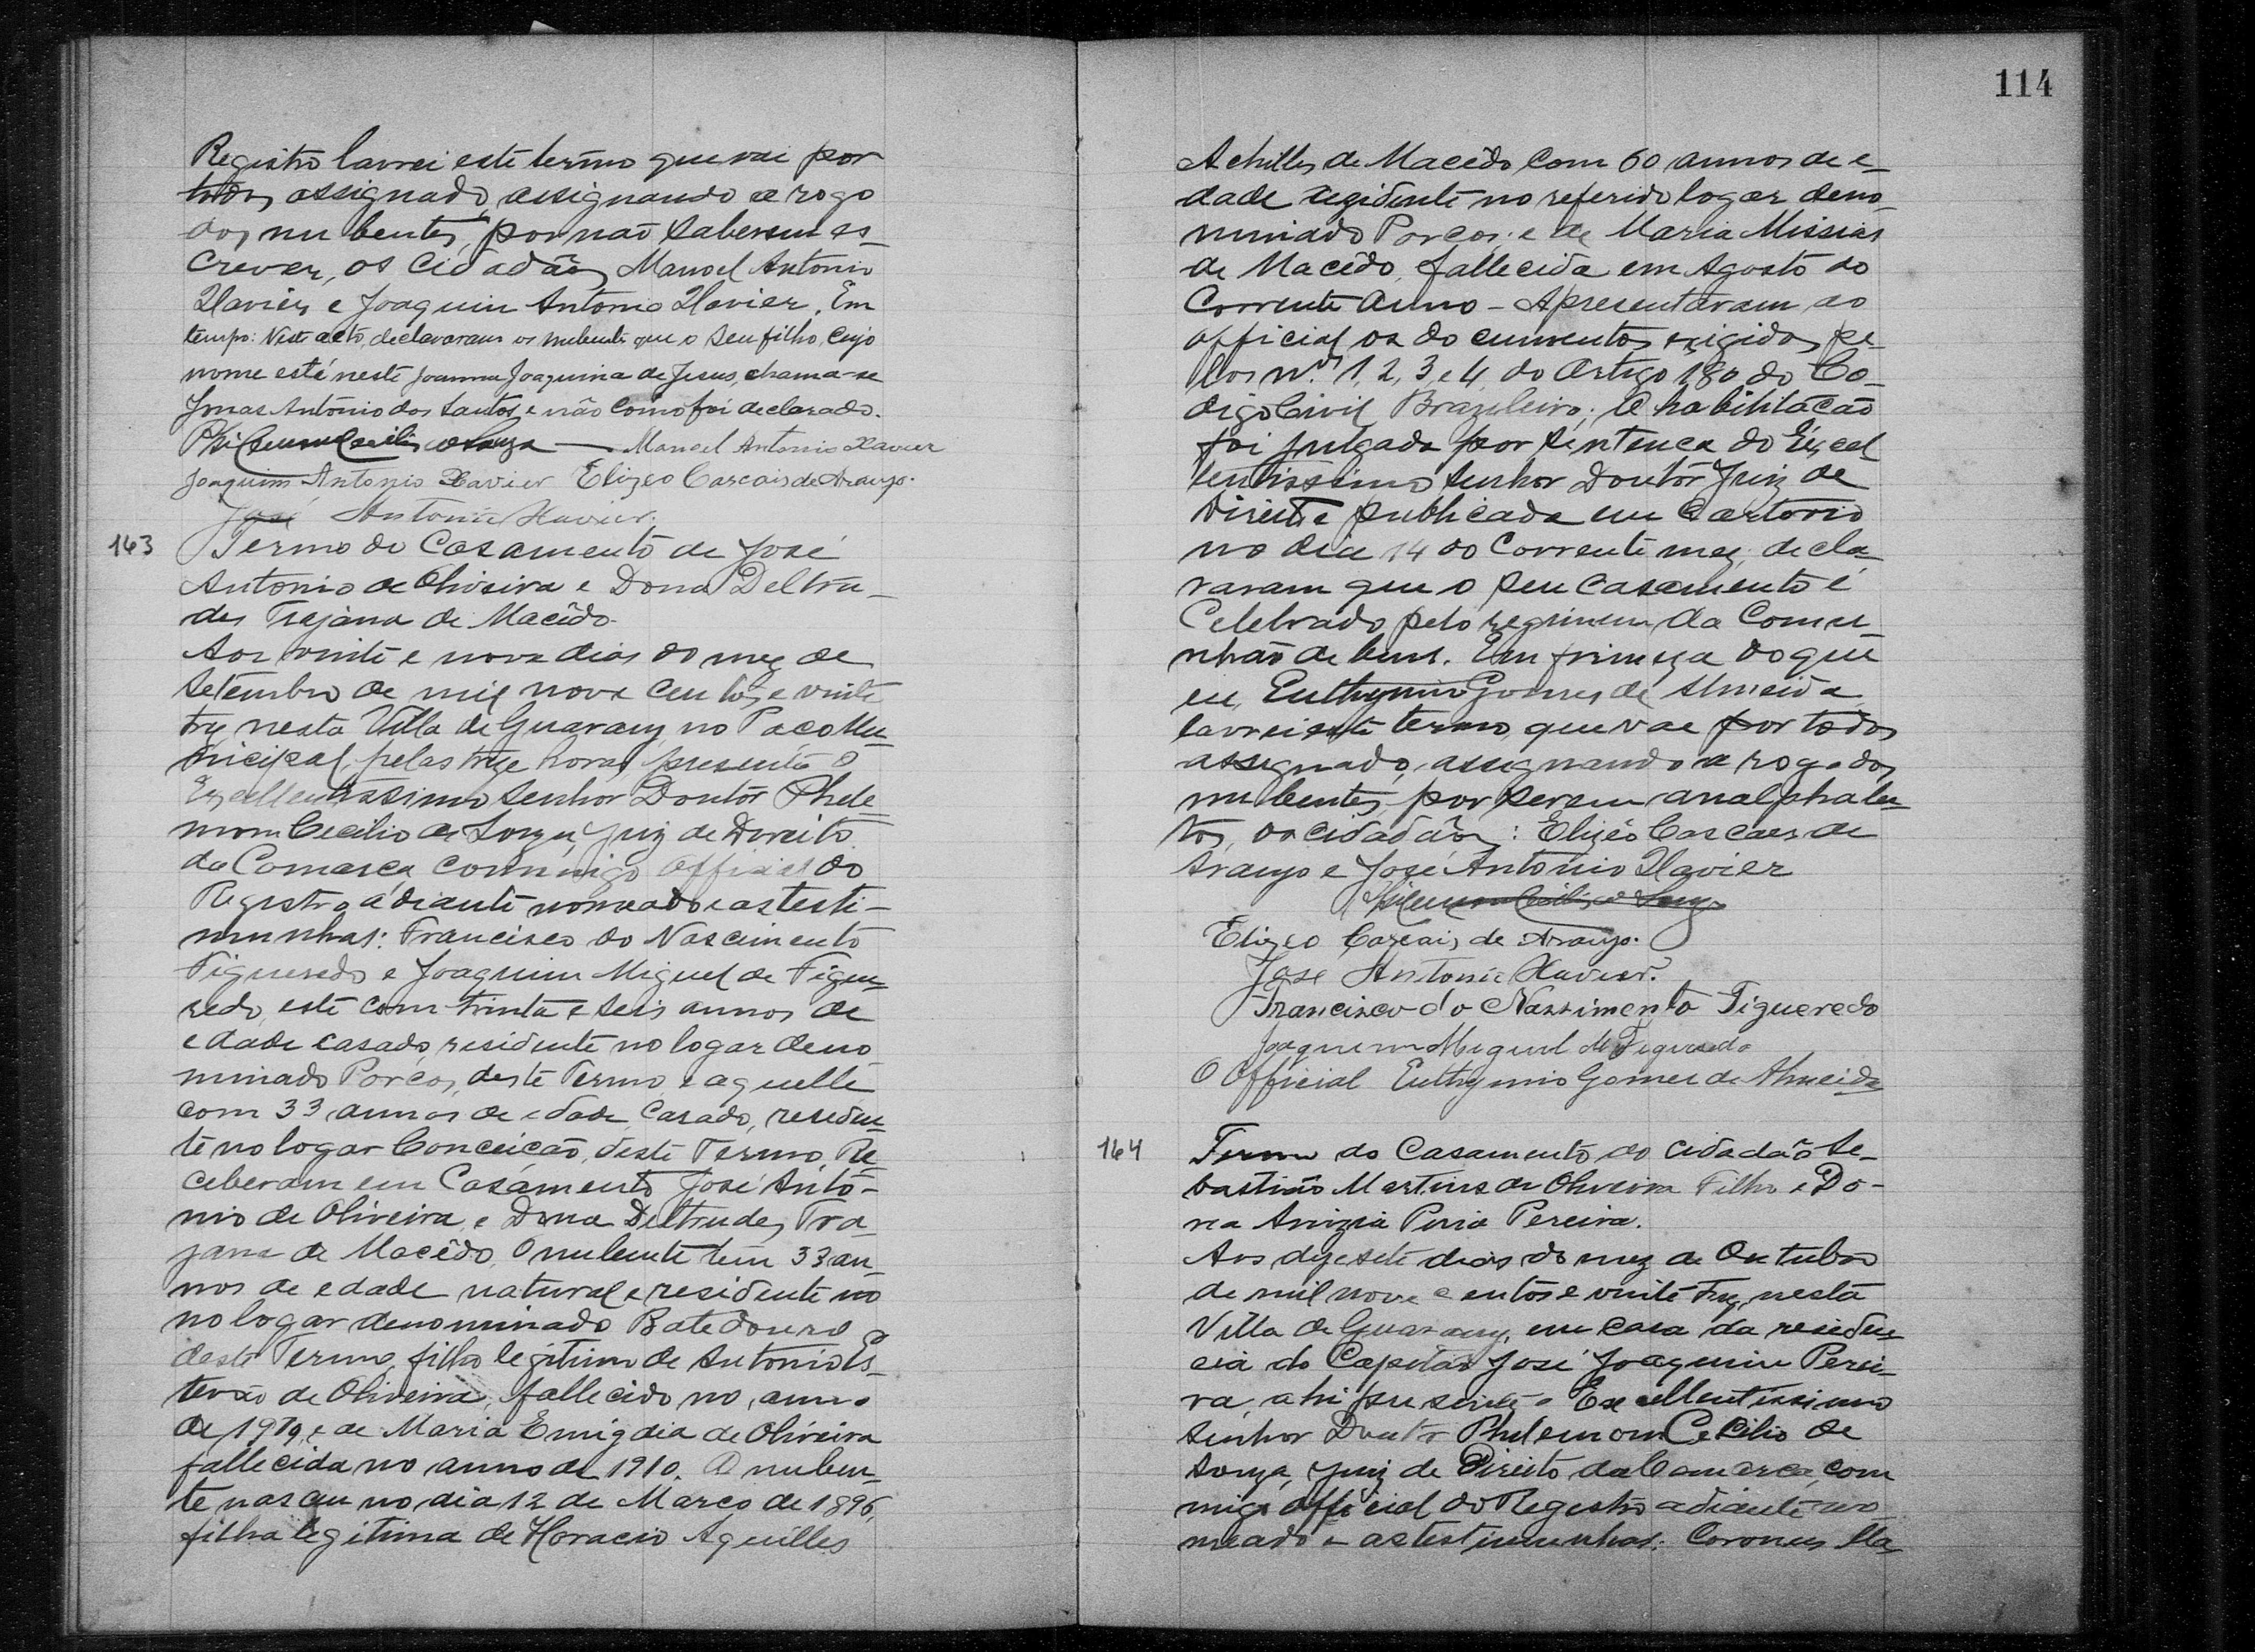 Registro lavrei este termo que vai por
todos assignado, assignando a rogo
dos nubentes, por não saberem es-
crever, os cidadãos Manoel Antonio
Xavier e Joaquim Antonio Xavier. Em
tempo: Neste acto, declararam os nubente que o seu filho, cujo
nome está neste Joanna Joaquina de Jesus, chama-se
Jonas Antonio dos Santos e não como foi declarado.
Philemon Cecilio de Souza — Manoel Antonio Xavier
Joaquim Antonio Xavier Elizeo Cascais de Araujo.
José Antonio Xavier.
163 Termo do Casamento de José
Antonio de Oliveira e Dona Deltru-
des Trajana de Macêdo.
Aos vinte e nove dias do mez de
Setembro de mil nove centos e vinte
trez nesta Villa de Guarany no Paço Mu-
nicipal, pelas treze horas presente o
Excellentissimo Senhor Doutor Phile
mom Cecilio de Souza, Juiz de Direito
da Comarca, commigo official do
Registro adiante nomeado e as teste-
munhas: Francisco do Nascimento
Figueredo e Joaquim Miguel de Figue-
redo, este com trinta e seis annos de
edade casado, residente no logar deno
minado Porcos, deste Termo, e aquelle
com 33 annos de edade, casado, residen-
te no logar Conceição, deste Termo, Re
ceberam em Casamento José Anto-
nio de Oliveira, e Dona Deltrudes Tra-
jana de Macêdo. O nubente tem 33 an-
nos de edade natural e residente no
no logar denominado Batedouro
deste Termo, filho legitimo de Antonio Es-
tevão de Oliveira, fallecido no anno
de 1919, e de Maria Emigdia de Oliveira
fallecida no anno de 1910. A nuben-
te nasceu no dia 12 de Março de 1896,
filha legitima de Horacio Aquilles
114
Achilles de Macêdo com 60 annos de e-
dade rezidente no referido logar deno-
minado Porcos; e de Maria Missias
de Macêdo, fallecida em Agosto do
corrente anno - Apresentaram ao
official os documentos exigidos pe-
los nos. 1, 2, 3, e 4, do Artigo 180 do Co-
digo Civil Brazileiro; A habilitação
foi julgada por sentença do Excel
lentissimo Senhor Doutor Juiz de
Direito e publicada em Cartorio
no dia 14 do corrente mez; decla
raram que o seu casamento é
Celebrado pelo regimem da Comu-
nhão de bens. Em firmeza do que
eu, Euthymio Gomes de Almeida
lavrei este termo, que vae por todos
assignado, assignando a rogo dos
nubentes por serem analphabe-
tos, os cidadãos: Elizéo Cascaes de
Araujo e José Antonio Xavier
Philemon Cecilio de Souza
Elizeo Cascais de Araujo.
Jose Antonio Xavier.
Francisco do Nassimento Figueredo
Joaquim Miguel de Figueredo
O Official Euthymio Gomes de Almeida
164 Termo do Casamento do cidadão Se-
bastião Martins de Oliveira Filho e Do-
na Anizia Pereira.
Aos dezesete dias do mez de Outubro
de mil nove centos e vinte trez, nesta
Villa de Guarany, em casa da residen-
cia do Capitão José Joaquim Perei-
ra, ahi presente o Excellentissimo
Senhor Doutor Philemom Cecilio de
Souza, Juiz de Direito da Comarca, com
migo official do Registro adiante no
meado e as testimunhas: Coroneis Ma